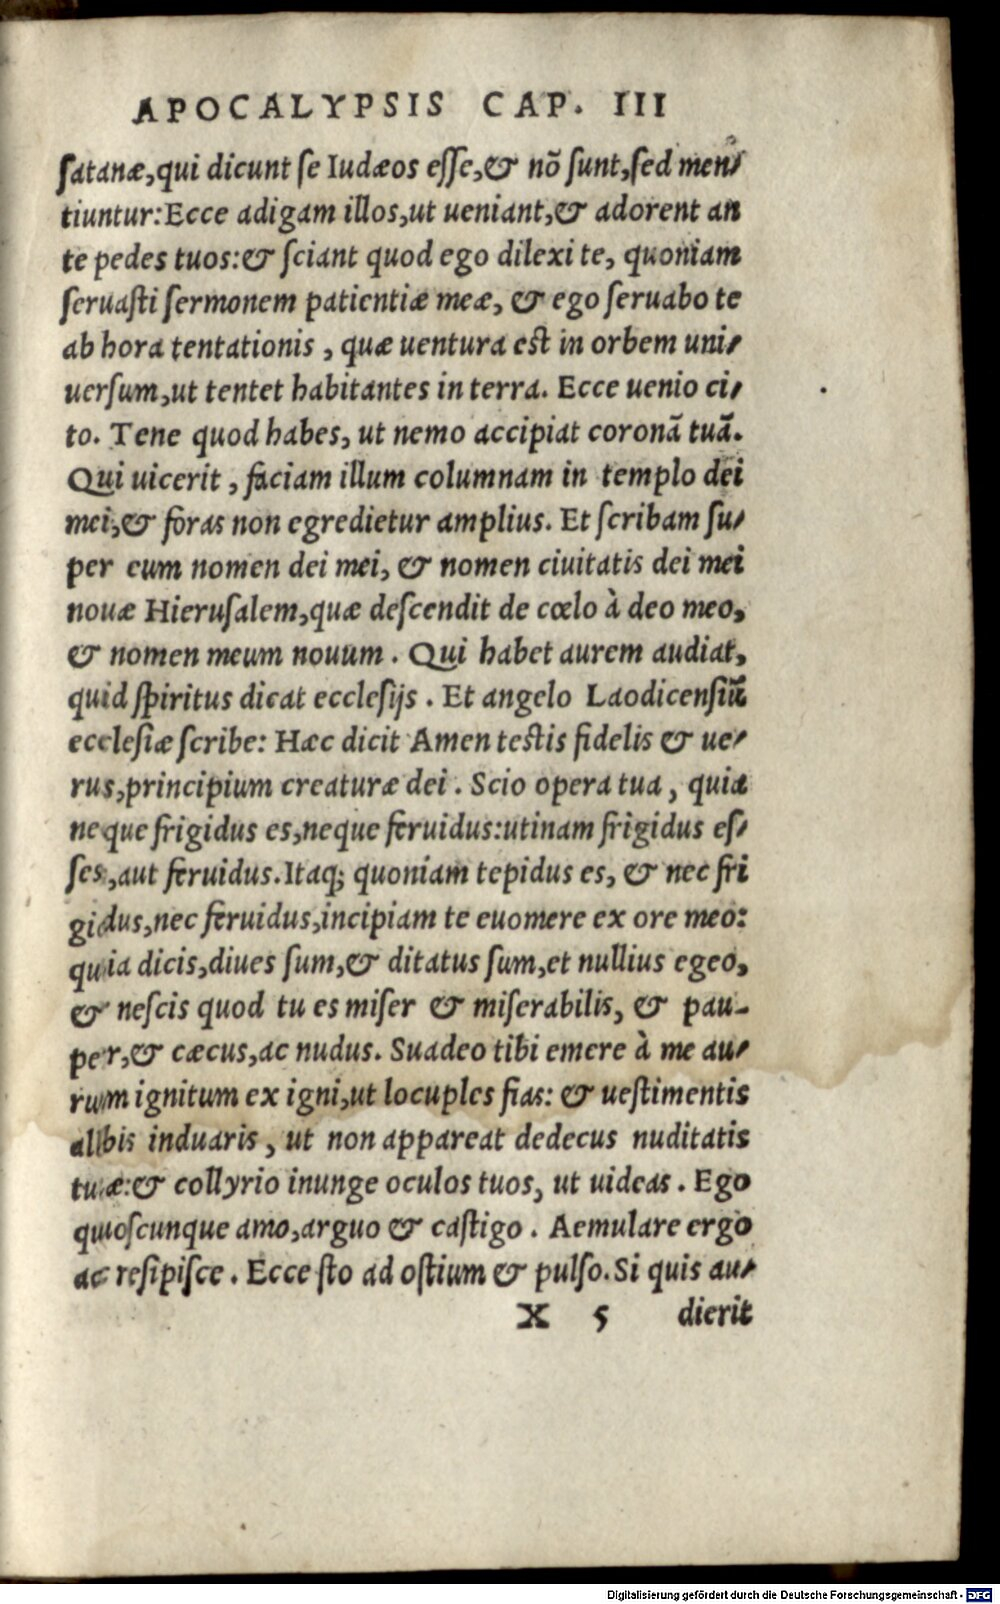 APOCALYPSIS CAP. III
ſatanæ,qui dicunt ſe Iudæos eſſe,& nõ ſunt,ſed men⸗
tiuntur:Ecce adigam illos,ut ueniant,& adorent an
te pedes tuos:& ſciant quod ego dilexi te, quoniam
ſeruaſti ſermonem patientiæ meæ, & ego ſeruabo te
ab hora tentationis , quæ uentura eſt in orbem uni⸗
uerſum,ut tentet habitantes in terra. Ecce uenio ci⸗
to. Tene quod habes, ut nemo accipiat coronã tuã.
Qui uicerit , faciam illum columnam in templo dei
mei,& foras non egredietur amplius. Et ſcribam ſu⸗
per eum nomen dei mei, & nomen ciuitatis dei mei
nouæ Hieruſalem,quæ deſcendit de cœlo à deo meo,
& nomen meum nouum . Qui habet aurem audiat,
quid ſpiritus dicat eccleſijs . Et angelo Laodicenſiũ
eccleſiæ ſcribe: Hæc dicit Amen teſtis fidelis & ue⸗
rus,principium creaturæ dei . Scio opera tua , quia
neque frigidus es,neque feruidus:utinam frigidus eſ⸗
ſes,aut feruidus.Itaq; quoniam tepidus es, & nec fri
gidus,nec feruidus,incipiam te euomere ex ore meo:
quia dicis,diues ſum,& ditatus ſum,et nullius egeo,
& neſcis quod tu es miſer & miſerabilis, & pau-
per,& cæcus,ac nudus. Suadeo tibi emere à me au⸗
rum ignitum ex igni,ut locuples fias: & ueſtimentis
albis induaris , ut non appareat dedecus nuditatis
tuæ:& collyrio inunge oculos tuos, ut uideas . Ego
quoſcunque amo,arguo & caſtigo . Aemulare ergo
ac reſipiſce . Ecce ſto ad oſtium & pulſo. Si quis au⸗
X 5 dierit
Digitalisierung gefördert durch die Deutsche Forschungsgemeinschaft - DFG